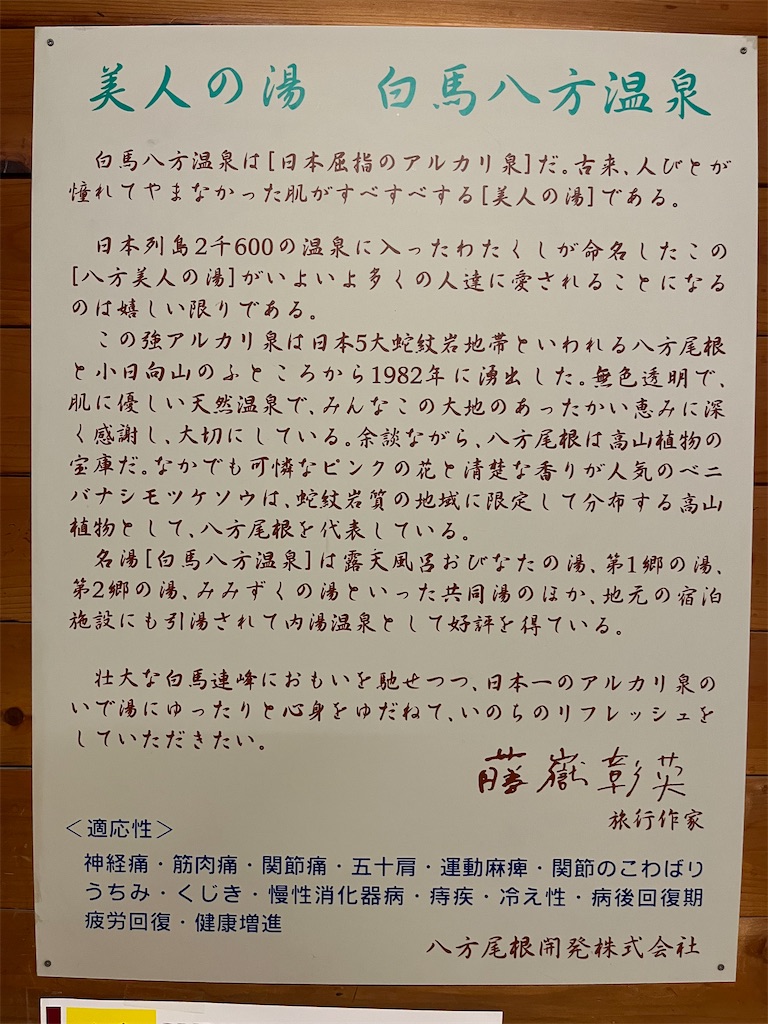 美人の湯　白馬八方温泉
白馬八方温泉は[日本屈指のアルカリ泉]だ。古来、人びとが
憧れてやまなかった肌がすべすべする[美人の湯]である。
日本列島2千600の温泉に入ったわたくしが命名したこの
[八方美人の湯]がいよいよ多くの人達に愛されることになる
のは嬉しい限りである。
この強アルカリ泉は日本5大蛇紋岩地帯といわれる八方尾根
と小日向山のふところから1982年に湧出した。無色透明で、
肌に優しい天然温泉で、みんなこの大地のあったかい恵みに深
く感謝し、大切にしている。余談ながら、八方尾根は高山植物の
宝庫だ。なかでも可憐なピンクの花と清楚な香りが人気のベニ
バナシモツケソウは、蛇紋岩質の地域に限定して分布する高山
植物として、八方尾根を代表している。
名湯[白馬八方温泉]は露天風呂おびなたの湯、第1郷の湯、
第2郷の湯、みみずくの湯といった共同湯のほか、地元の宿泊
施設にも引湯されて内湯温泉として好評を得ている。
壮大な白馬連峰におもいを馳せつつ、日本一のアルカリ泉の
いで湯にゆったりと心身をゆだねて、いのちのリフレッシュを
していただきたい。
藤嶽彰英
旅行作家
＜適応性＞
神経痛・筋肉痛・関節痛・五十肩・運動麻痺・関節のこわばり
うちみ・くじき・慢性消化器病・痔疾・冷え性・病後回復期
疲労回復・健康増進
八方尾根開発株式会社